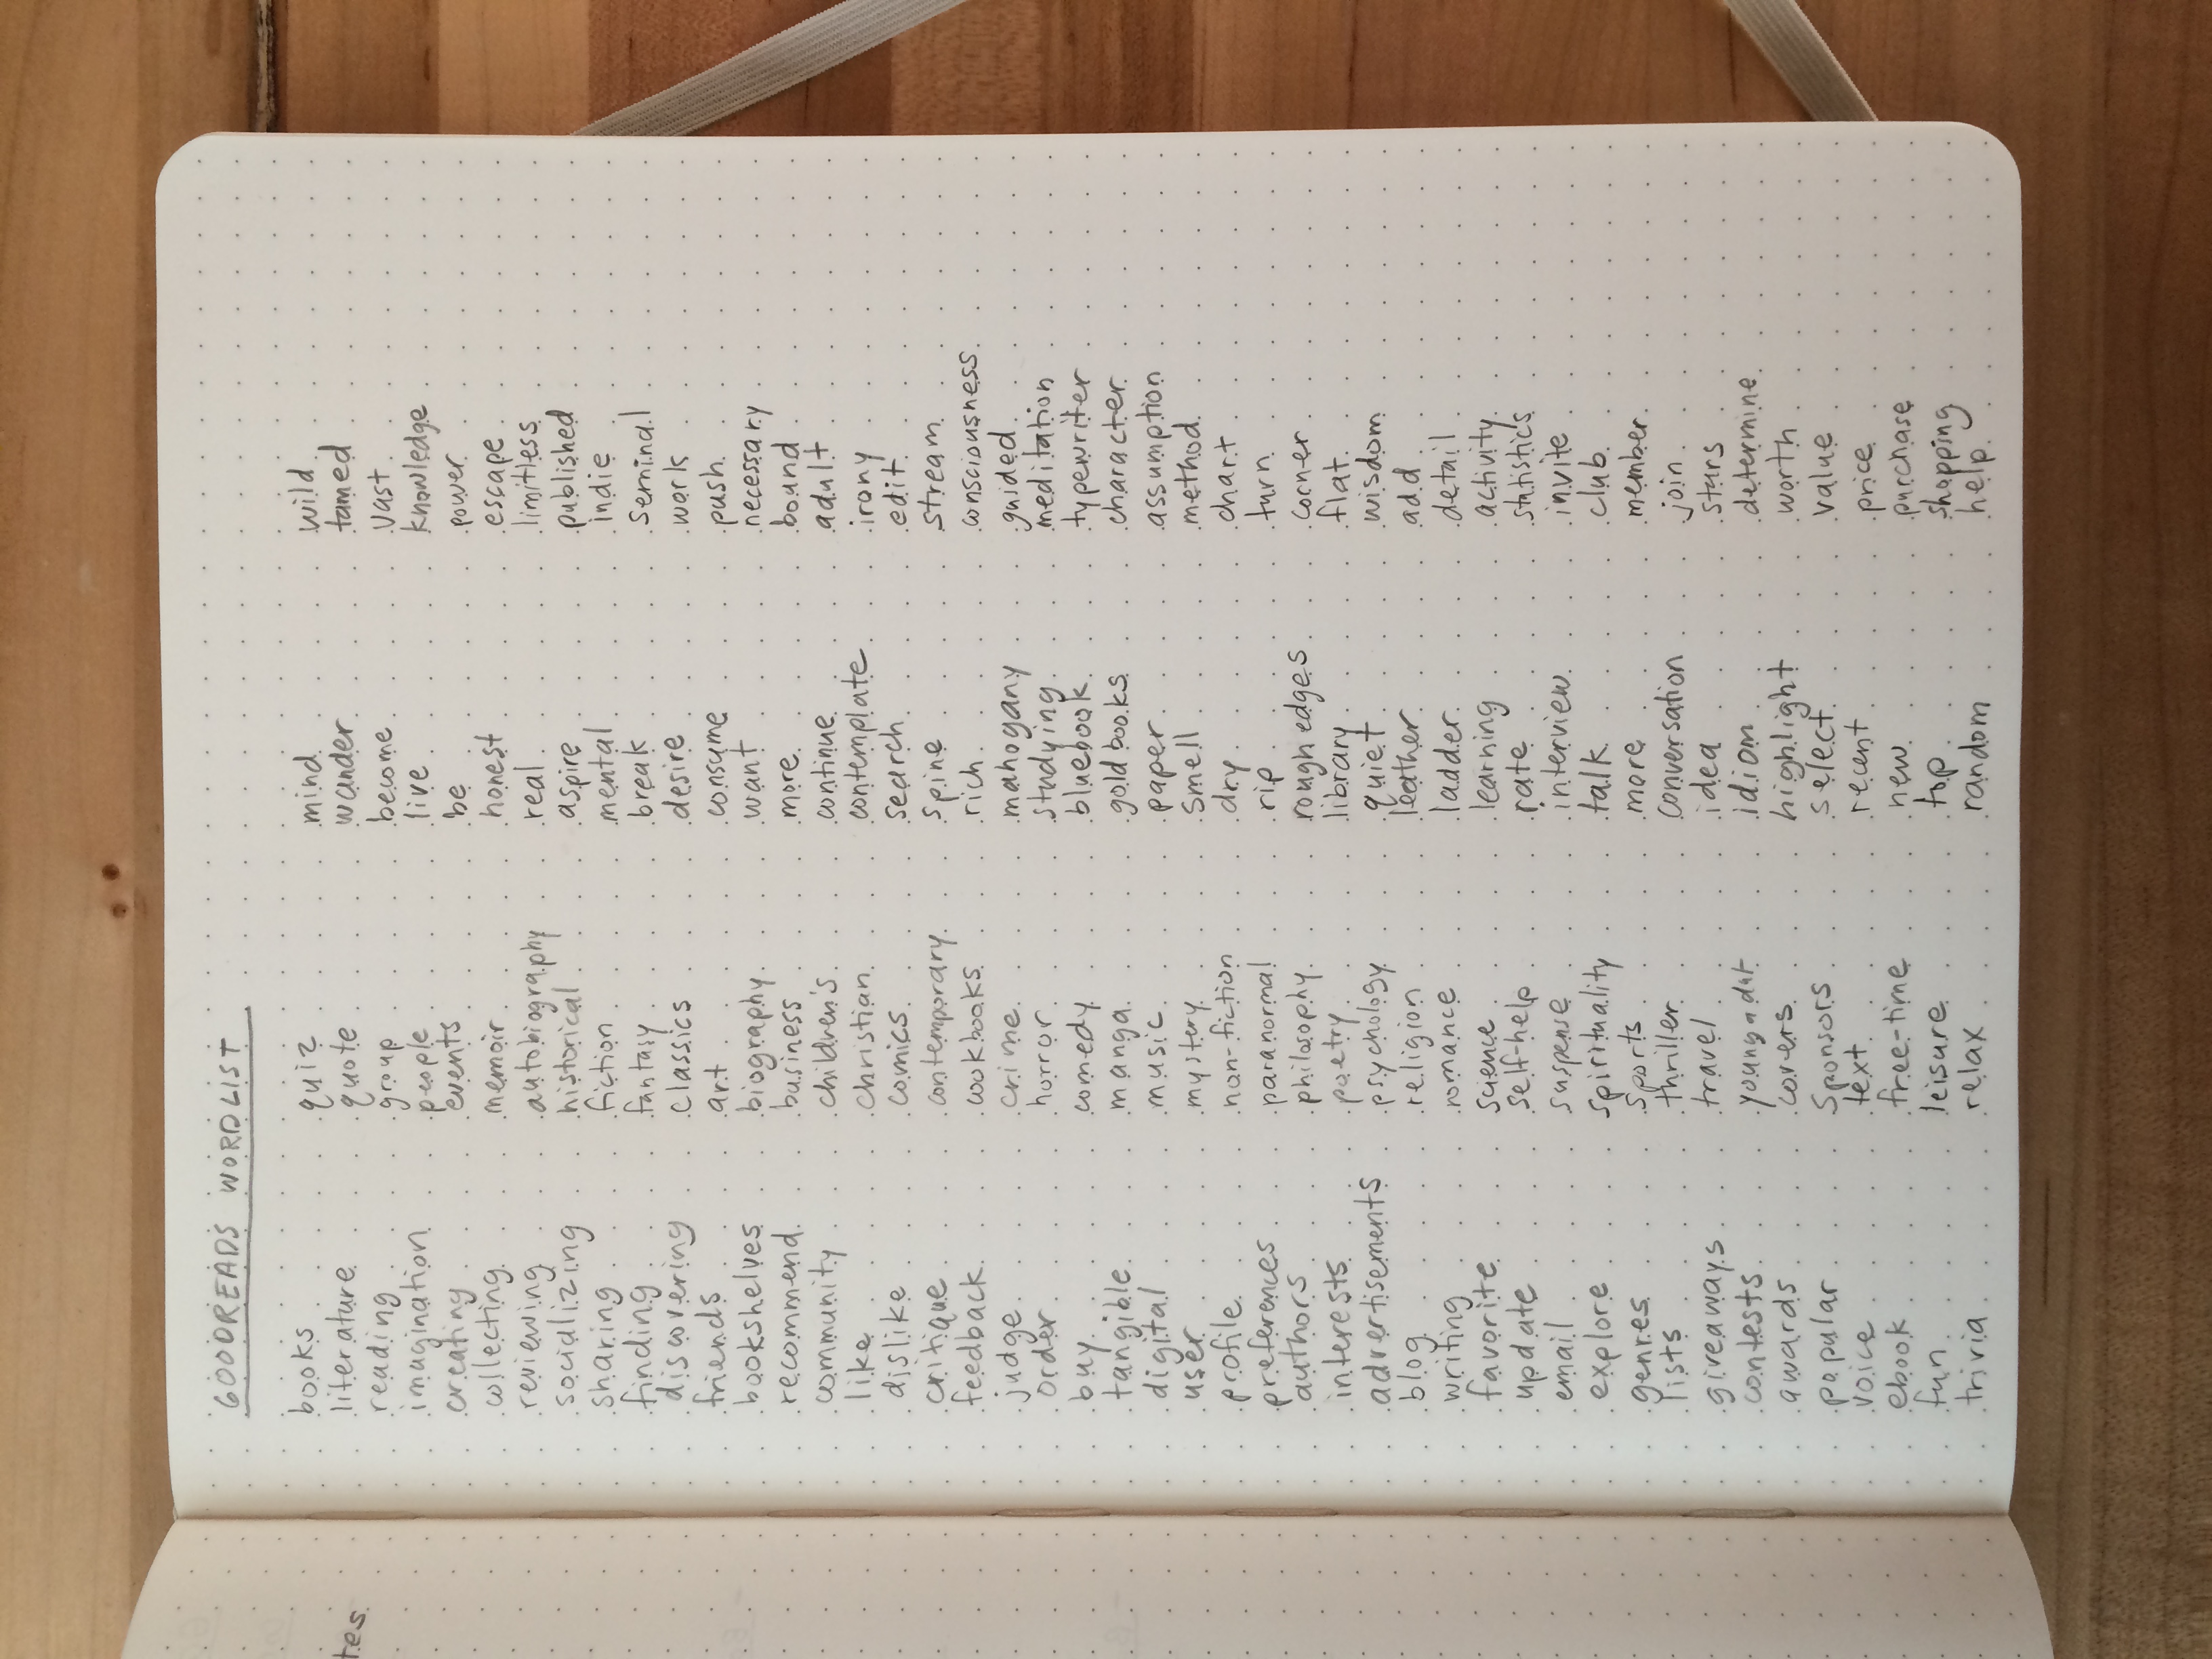 GOODREADS WORDLIST
books
literature
reading
imagination
creating
collecting
reviewing
socializing
sharing
finding
discovering
friends
bookshelves
recommend
community
like
dislike
critique
feedback
judge
order
buy
tangible
digital
user
profile
preferences
authors
interests
advertisements
blog
writing
favorite
update
email
explore
genres
lists
giveaways
contests
awards
popular
voice
ebook
fun
trivia
quiz
quote
group
people
events
memoir
autobiography
historical
fiction
fantasy
classics
art
biography
business
children's
christian
comics
contemporary
cookbooks
crime
horror
comedy
manga
music
mystery
non-fiction
paranormal
philosophy
poetry
psychology
religion
romance
science
self-help
suspense
spirituality
sports
thriller
travel
young adult
covers
sponsors
text
free-time
leisure
relax
mind
wander
become
live
be
honest
real
aspire
mental
break
desire
consume
want
more
continue
contemplate
search
spine
rich
mahogany
studying
bluebook
gold books
paper
smell
dry
rip
rough edges
library
quiet
leather
ladder
learning
rate
interview
talk
more
conversation
idea
idiom
highlight
select
recent
new
top
random
wild
tamed
vast
knowledge
power
escape
limitless
published
indie
seminal
work
push
necessary
bound
adult
irony
edit
stream
consciousness
guided
meditation
typewriter
character
assumption
method
chart
turn
corner
flat
wisdom
add
detail
activity
statistics
invite
club
member
join
stars
determine
worth
value
price
purchase
shopping
help